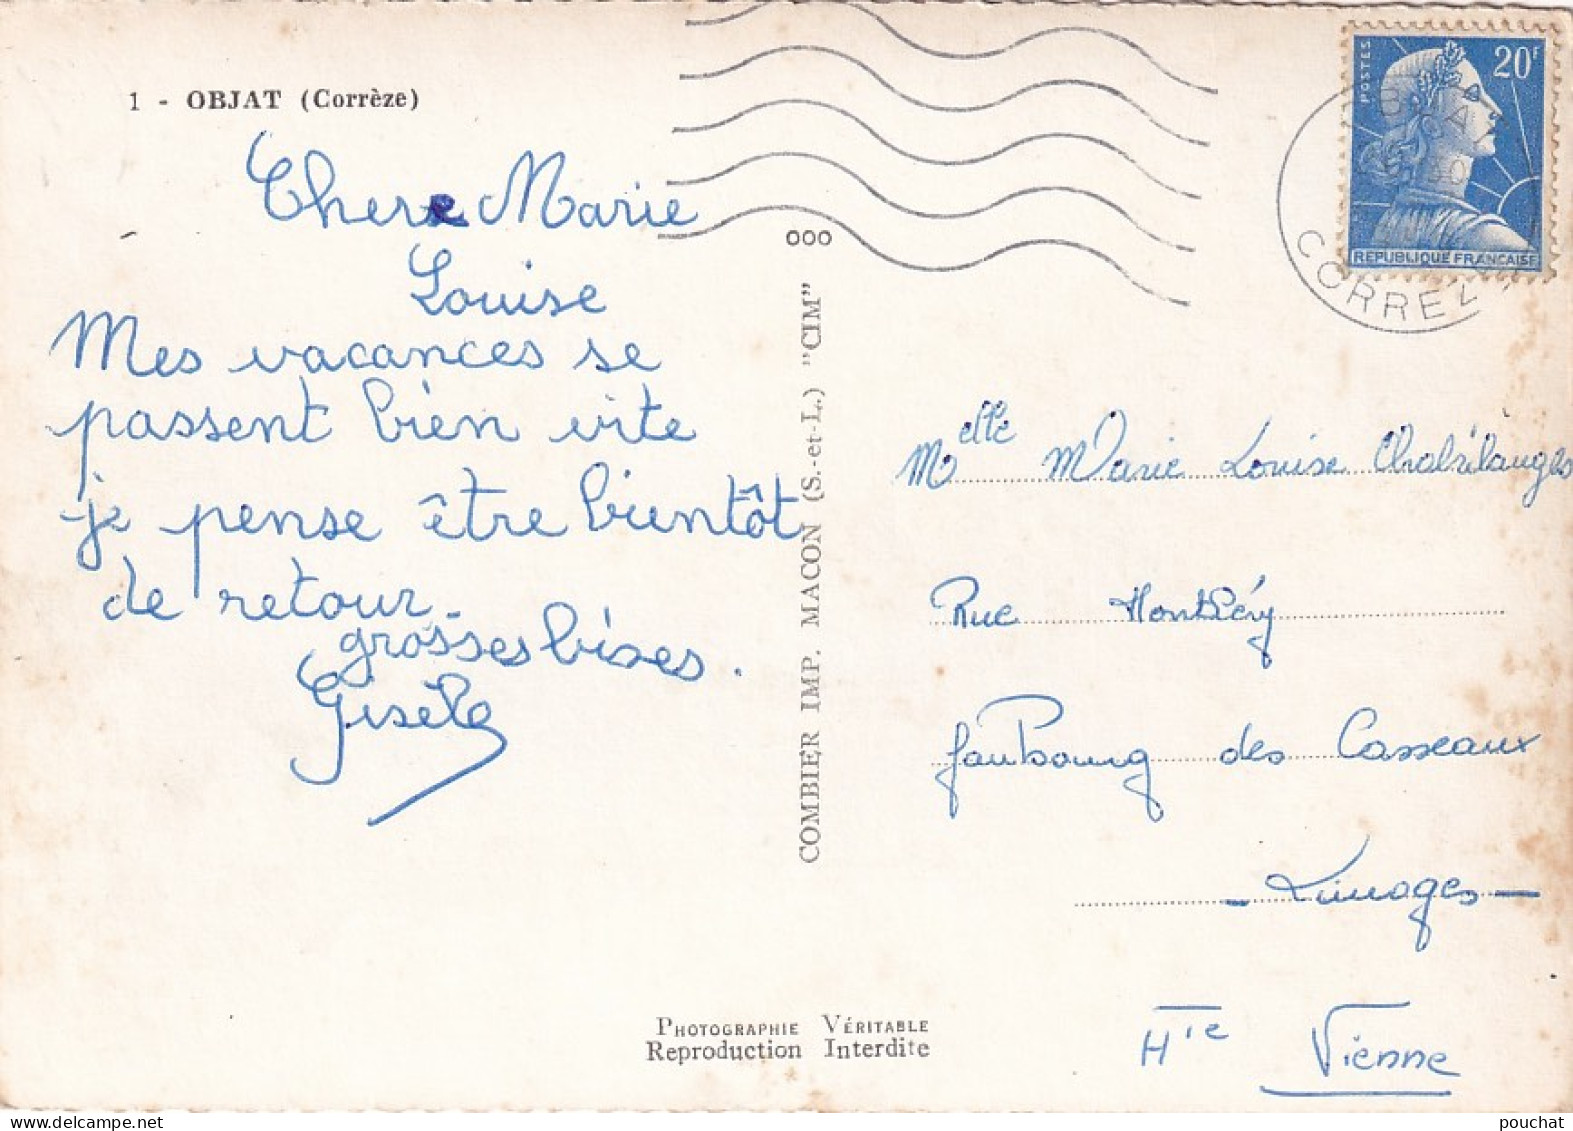 1 - OBJAT (Corrèze)
Chere Marie
Louise
Mes vacances se
passent bien vite
je pense être bientôt
de retour.
grosses bises.
Gisèle
COMBIER IMP. MACON (S.-et-L.) "CIM"
000
PHOTOGRAPHIE VÉRITABLE
Reproduction Interdite
POSTES
20F
REPUBLIQUE FRANÇAISE
CORREZE
Melle Marie Louise
Rue
faubourg des Casseaux
- Limoges -
Hte Vienne
pouchat